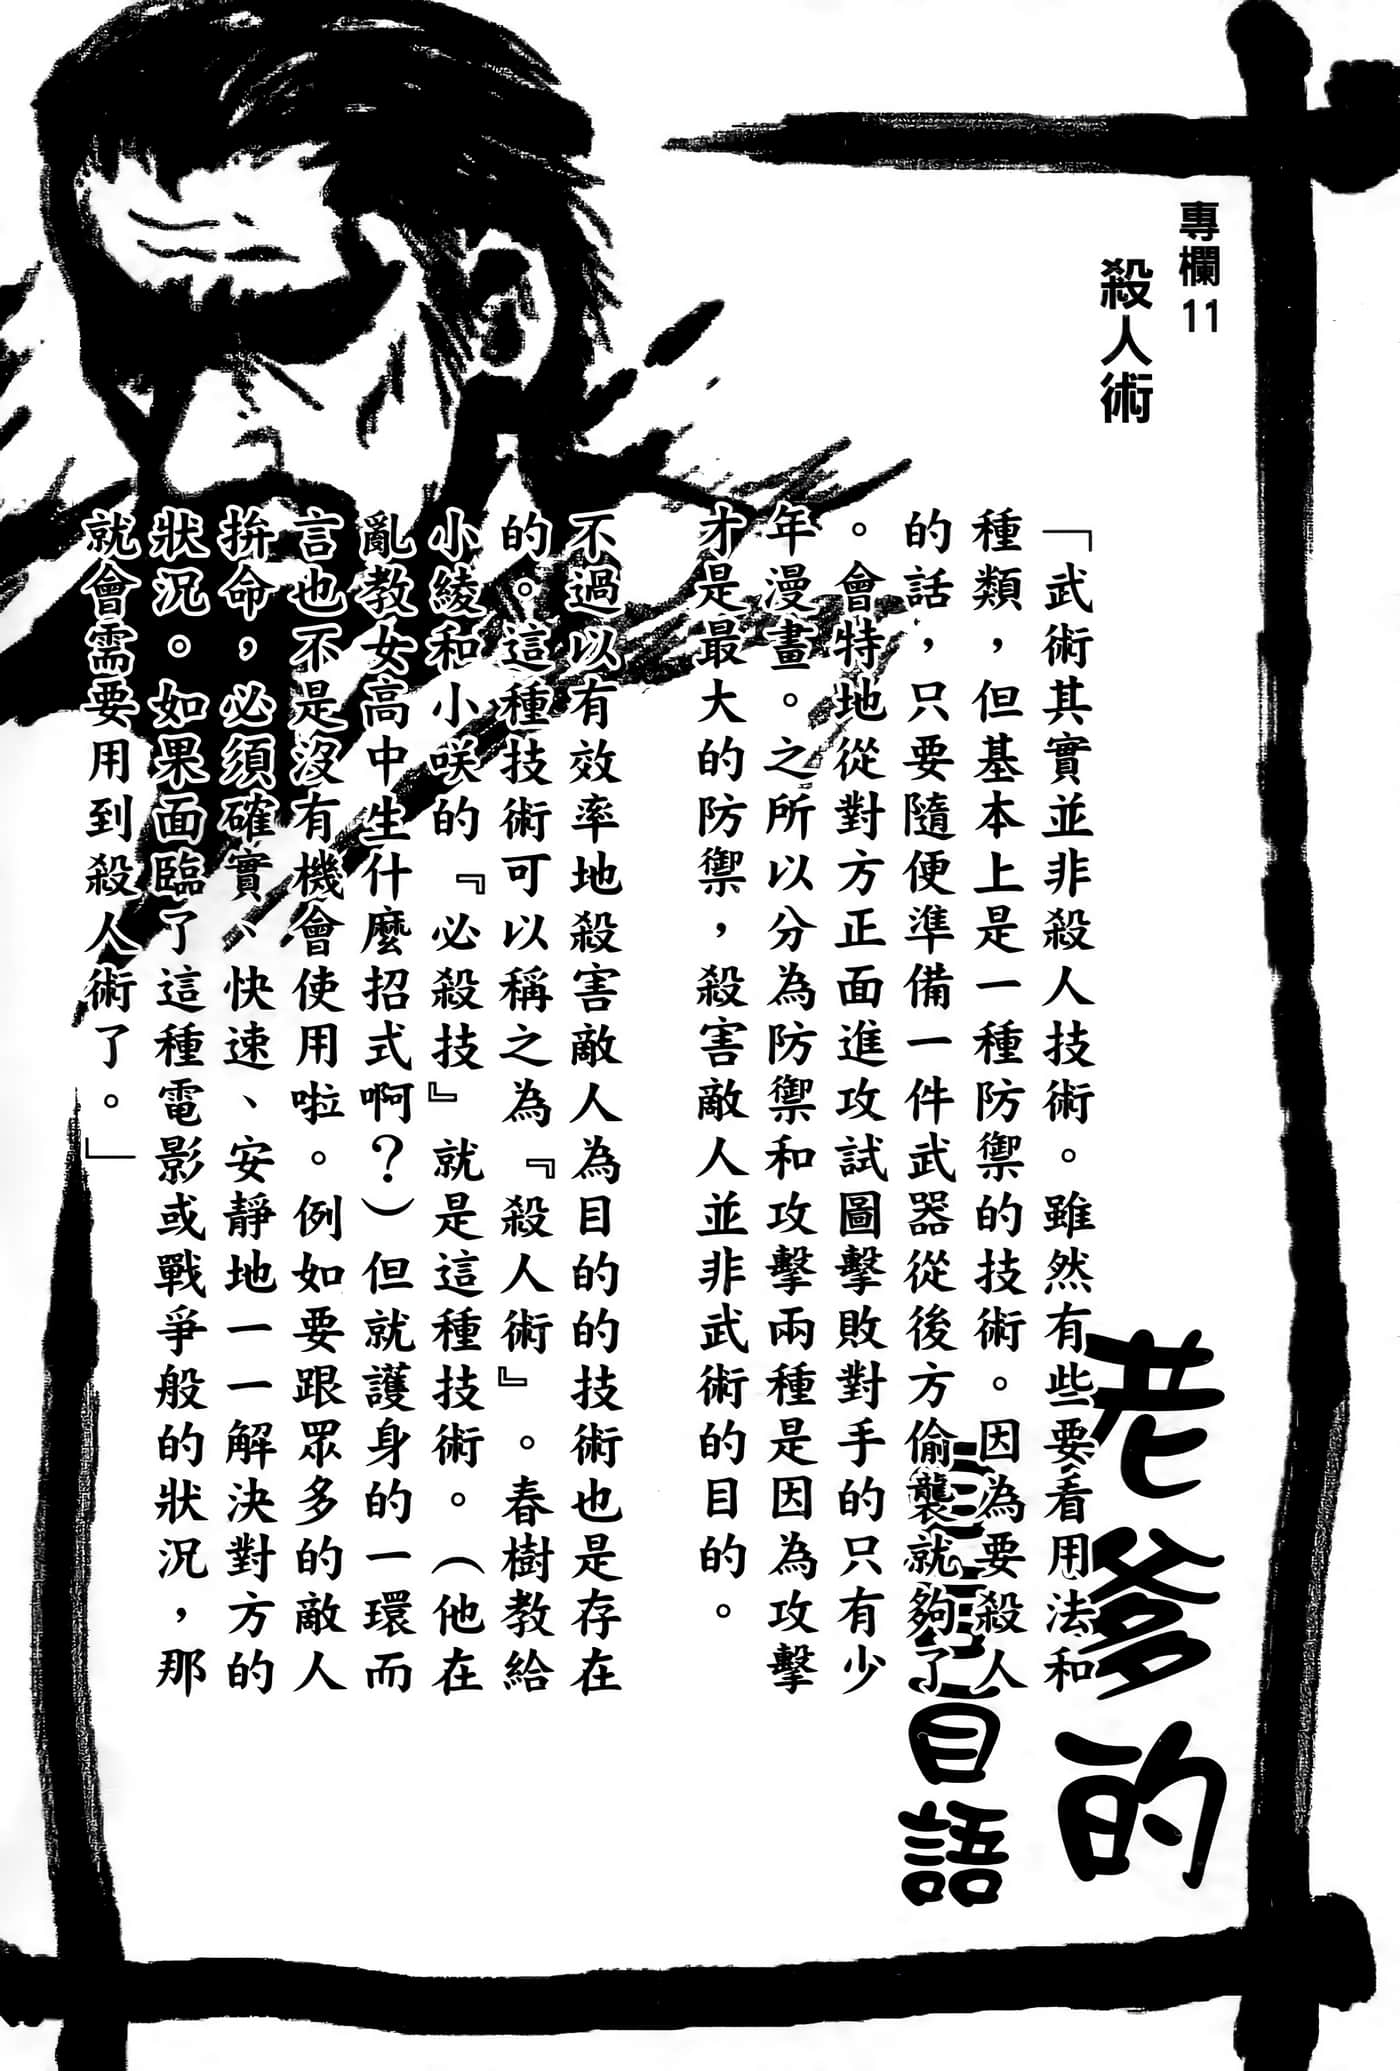 專欄11
殺人術
「武術其實並非殺人技術。雖然有些要看用法和
種類，但基本上是一種防禦的技術。因為要殺人
的話，只要隨便準備一件武器從後方偷襲就夠了
。會特地從對方正面進攻試圖擊敗對手的只有少
年漫畫。之所以分為防禦和攻擊兩種是因為攻擊
才是最大的防禦，殺害敵人並非武術的目的。
不過以有效率地殺害敵人為目的的技術也是存在
的。這種技術可以稱之為『殺人術』。春樹教給
小綾和小咲的『必殺技』就是這種技術。（他在
亂教女高中生什麼招式啊？）但就護身的一環而
言也不是沒有機會使用啦。例如要跟眾多的敵人
拚命，必須確實、快速、安靜地一一解決對方的
狀況。如果面臨了這種電影或戰爭般的狀況，那
就會需要用到殺人術了。」
老爹的
自語